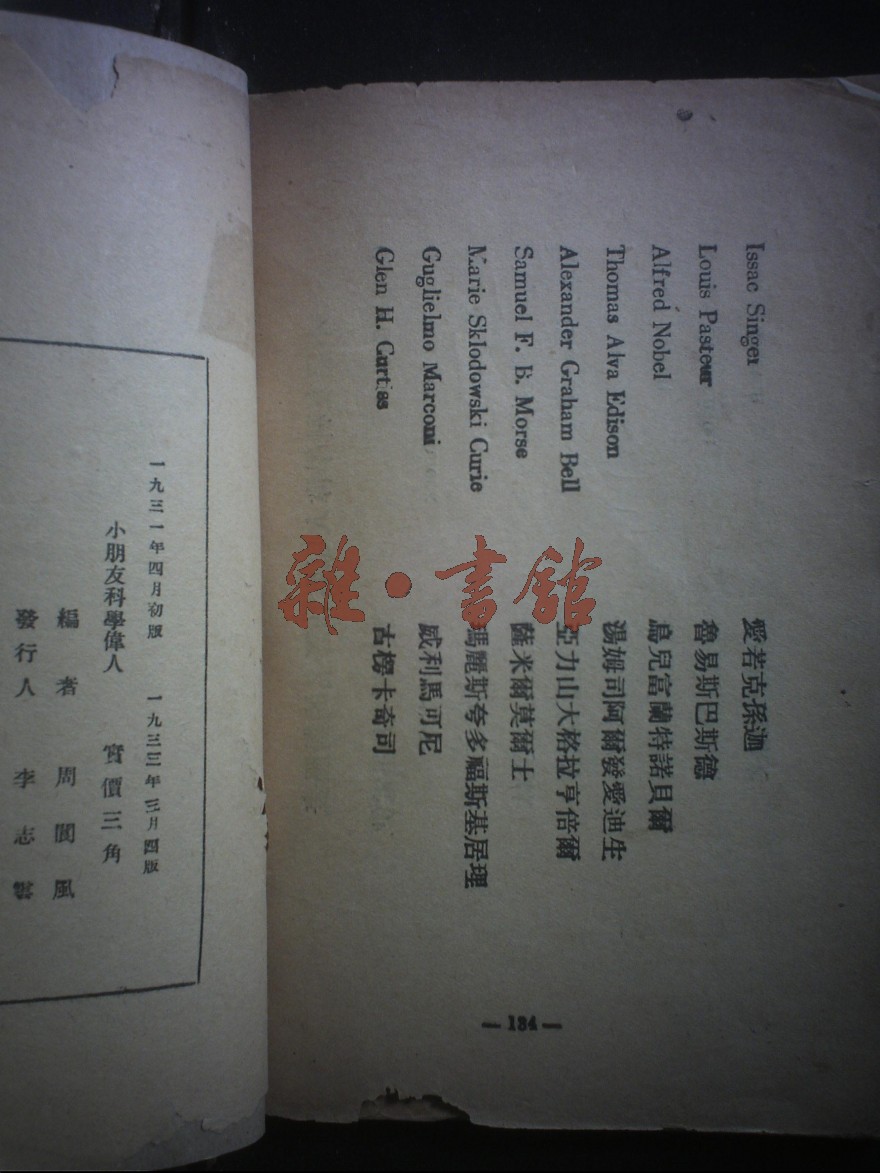 Issac Singer 愛若克孫迦
Louis Pasteur 魯易斯巴斯德
Alfred Nobel 鳥兒富蘭特諾貝爾
Thomas Alva Edison 湯姆司阿爾發愛迪生
Alexander Graham Bell 亞力山大格拉亨倍爾
Samuel F. B. Morse 薩米爾莫爾士
Marie Sklodowski Curie 瑪麗斯夸多福斯基居理
Guglielmo Marconi 威利馬可尼
Glen H. Curtiss 古楞卡奇司
— 134 —
雜·書館
一九三一年四月初版 一九三三年三月四版
小朋友科學偉人 實價三角
編者 周閬風
發行人 李志雲